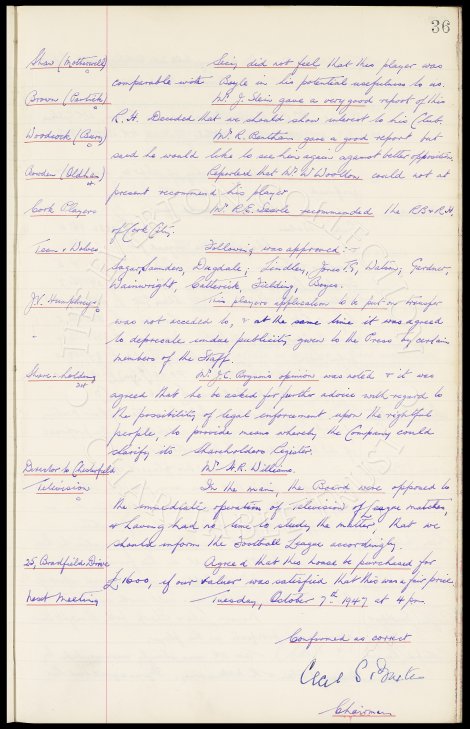 36
Shaw (Motherwell) Seig did not feel that this player was
comparable with Boyle in his potential usefulness to us.
Brown (Partick) Mr. J. Stein gave a very good report of this
R.H. Decided that we should show interest to his Club.
Woodcock (Bury) Mr R. Bentham gave a good report but
said he would like to see him again against better opposition
Bowden (Oldham) Reported that Mr. W. Woolton could not at
present recommend his player.
Cork Players Mr R.E. Searle recommended the R.B & R.H.
of Cork City.
Team v Wolves Following was approved:-
Sagar, Saunders, Dugdale; Lindley, Jones T.G, Watson; Gardner,
Wainwright, Catterick, Fielding, Boyes.
J.V. Humphreys This players application to be put on transfer
was not acceded to, & at the same time it was agreed
to deprecate undue publicity given to the Press by certain
members of the Staff.
Share-holding Mr J.C. Bryson's opinion was noted & it was
agreed that he be asked for further advice with regard to
the possibility of legal enforcement upon the rightful
people, to provide means whereby the Company could
clarify its Shareholders Register.
Director to Chesterfield Mr A.R. Williams.
Television In the main, the Board were opposed to
the immediate operation of television of league matches,
& having had no time to study the matter, that we
should inform the Football League accordingly.
25, Bradfield Drive Agreed that this house be purchased for
£1600, if our valuer was satisfied that this was a fair price.
Next Meeting Tuesday, October 7th 1947 at 4 pm.
Confirmed as correct
Cecil S. Baxter
Chairman